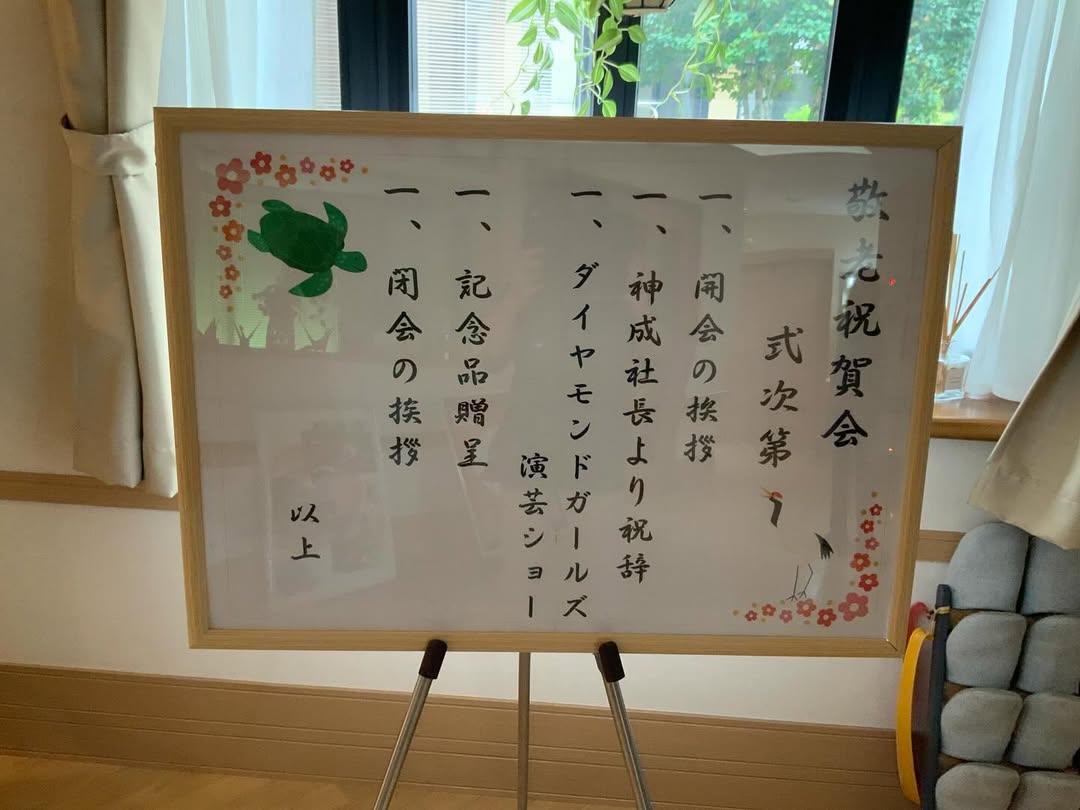 敬老祝賀会
式次第
一、開会の挨拶
一、神成社長より祝辞
一、ダイヤモンドガールズ
演芸ショー
一、記念品贈呈
一、閉会の挨拶
以上